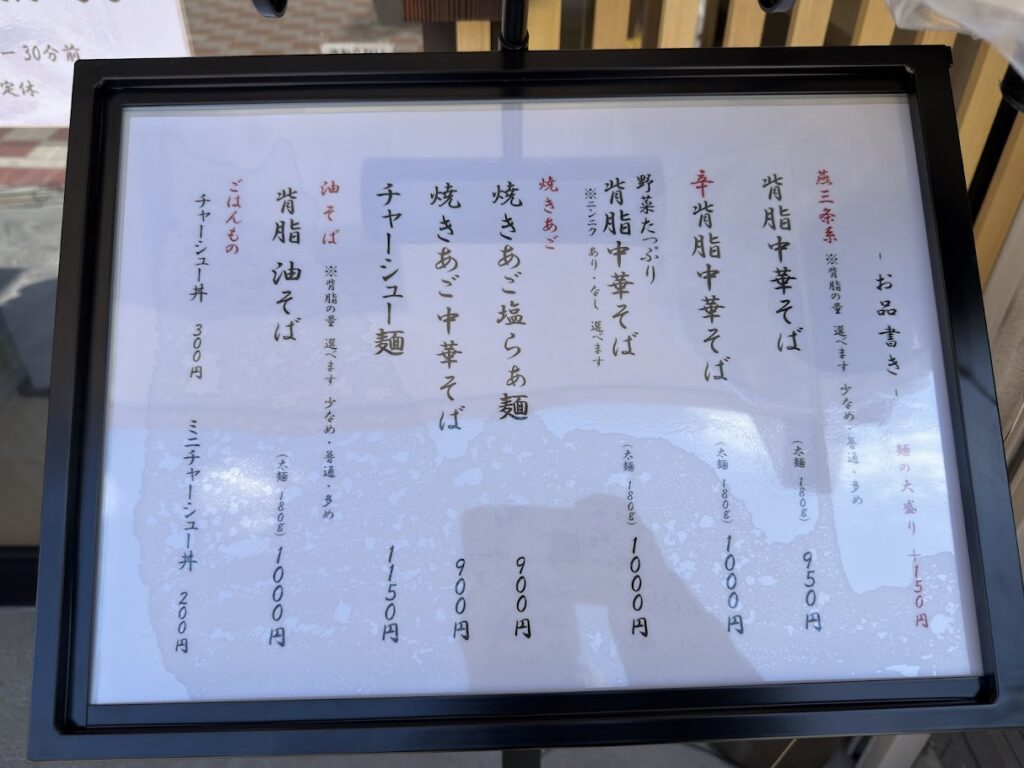 - お品書き -
麺の大盛り +150円
燕三条系 ※背脂の量 選べます 少なめ・普通・多め
背脂中華そば (太麺 180g) 950円
辛背脂中華そば (太麺 180g) 1000円
野菜たっぷり
背脂中華そば (太麺 180g) 1000円
※ニンニク あり・なし 選べます
焼きあご
焼きあご塩らぁ麺 900円
焼きあご中華そば 900円
チャーシュー麺 1150円
油そば ※背脂の量 選べます 少なめ・普通・多め
背脂 油そば (太麺 180g) 1000円
ごはんもの
チャーシュー丼 300円 ミニチャーシュー丼 200円
ー 30分前
定休